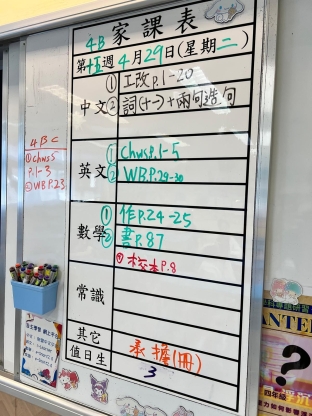 4B 家課表
第十五週 4月29日(星期二)
中文
① 工改p.1-20
② 詞(十一)+兩句造句
英文
① Chws P.1-5
② WB P.29-30
數學
① 作P.24-25
② 書P.87
③ 校本P.8
常識
其它
值日生
3
4BC
① Chws
P.1-3
② WB P.23
ANTE
?
四年級